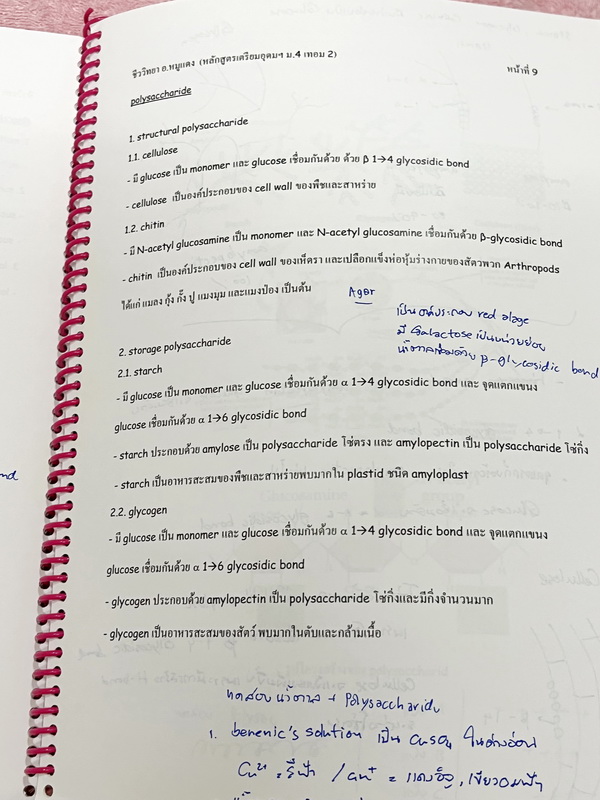 ชีววิทยา อ.หมูแดง (หลักสูตรเตรียมอุดมฯ ม.4 เทอม 2)
หน้าที่ 9
polysaccharide
1. structural polysaccharide
1.1. cellulose
- มี glucose เป็น monomer และ glucose เชื่อมกันด้วย ด้วย β 1→4 glycosidic bond
- cellulose เป็นองค์ประกอบของ cell wall ของพืชและสาหร่าย
1.2. chitin
- มี N-acetyl glucosamine เป็น monomer และ N-acetyl glucosamine เชื่อมกันด้วย β-glycosidic bond
- chitin เป็นองค์ประกอบของ cell wall ของเห็ดรา และเปลือกแข็งห่อหุ้มร่างกายของสัตวพวก Arthropods
ได้แก่ แมลง กุ้ง กั้ง ปู แมงมุม และแมงป่อง เป็นต้น
Agar
เป็นองค์ประกอบ red alage
มี Galactose เป็นหน่วยย่อย
น้ำตาลเชื่อมด้วย β-glycosidic bond
2. storage polysaccharide
2.1. starch
- มี glucose เป็น monomer และ glucose เชื่อมกันด้วย α 1→4 glycosidic bond และ จุดแตกแขนง
glucose เชื่อมกันด้วย α 1→6 glycosidic bond
- starch ประกอบด้วย amylose เป็น polysaccharide โซ่ตรง และ amylopectin เป็น polysaccharide โซ่กิ่ง
- starch เป็นอาหารสะสมของพืชและสาหร่ายพบมากใน plastid ชนิด amyloplast
2.2. glycogen
- มี glucose เป็น monomer และ glucose เชื่อมกันด้วย α 1→4 glycosidic bond และ จุดแตกแขนง
glucose เชื่อมกันด้วย α 1→6 glycosidic bond
- glycogen ประกอบด้วย amylopectin เป็น polysaccharide โซ่กิ่งและมีกิ่งจำนวนมาก
- glycogen เป็นอาหารสะสมของสัตว์ พบมากในตับและกล้ามเนื้อ
ทดสอบน้ำตาล + Polysaccharide
1. benenic's solution เป็น CuSO4 ในด่างอ่อน
Cu2+ = สีฟ้า / Cu+ = แดงอิฐ, เขียวอมฟ้า